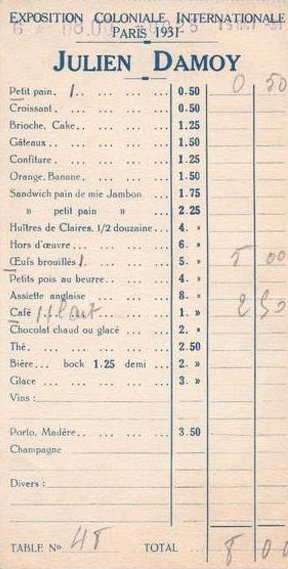 EXPOSITION COLONIALE INTERNATIONALE
PARIS 1931
JULIEN DAMOY
Petit pain. 1. ... ... ... ... 0.50 0 50
Croissant. ... ... ... ... 0.50
Brioche, Cake... ... ... ... 1.25
Gâteaux... ... ... ... ... 1.50
Confiture. ... ... ... ... 1.25
Orange, Banane. ... ... ... 1.50
Sandwich pain de mie Jambon ... 1.75
» petit pain » ... 2.25
Huîtres de Claires, 1/2 douzaine... 4. »
Hors d'œuvre... ... ... ... 6. »
Œufs brouillés 1. ... ... ... 5. » 5 00
Petits pois au beurre... ... ... 4. »
Assiette anglaise ... ... ... 8. »
Café ... ... 1. » 2 50
Chocolat chaud ou glacé ... ... 2. »
Thé. ... ... ... ... ... 2.50
Bière... bock 1.25 demi ... 2. »
Glace ... ... ... ... ... 3. »
Vins :
Porto, Madère... ... ... ... 3.50
Champagne
Divers :
TABLE No 48 TOTAL ... 8 00